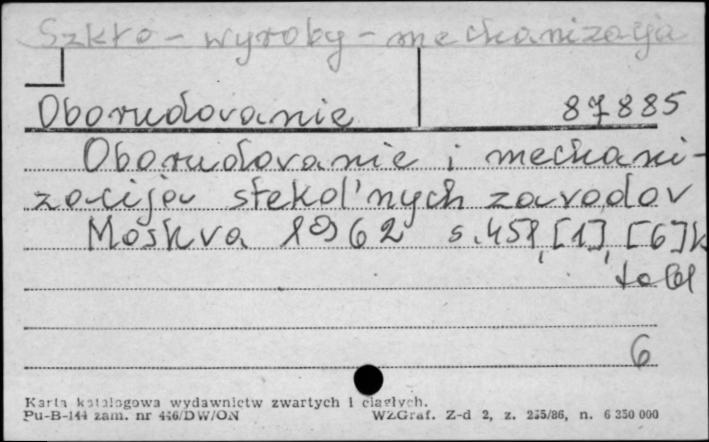 Szkło - wyroby - mechanizacja
Oborudovanie 87885
Oborudovanie i mechani-
zacija stekol'nych zavodov
Moskva 1962 s. 451, [1], [6] k
tabl
6
Karta katalogowa wydawnictw zwartych i ciągłych.
Pu-B-144 zam. nr 446/DW/ON WZGraf. Z-d 2, z. 255/86, n. 6 350 000